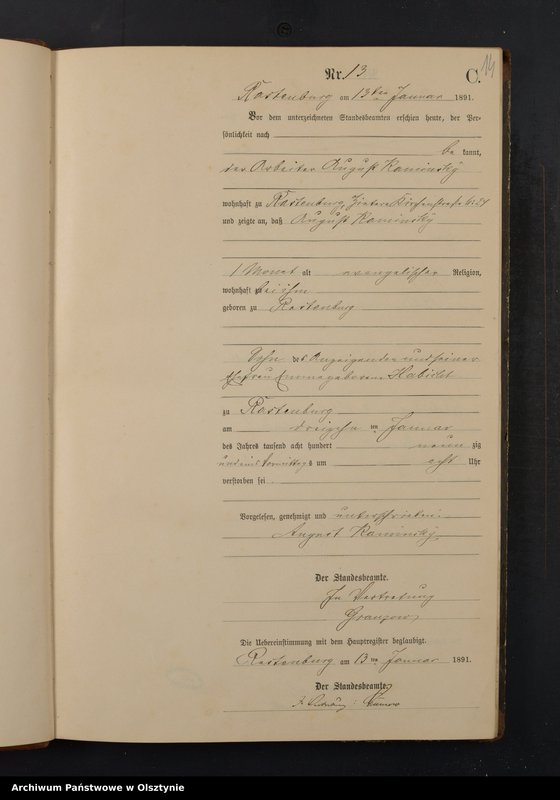 14
Nr. 13
C.
Rastenburg am 13ten Januar 1891.
Vor dem unterzeichneten Standesbeamten erschien heute, der Per-
sönlichkeit nach
be kannt,
der Arbeiter August Kaminsky
wohnhaft zu Rastenburg, Hintere Kirchenstraße
und zeigte an, daß August Kaminsky
1 Monat alt evangelischer Religion,
wohnhaft bei ihm
geboren zu Rastenburg
Sohn des Anzeigenden und seiner
Ehefrau Emma geborene Habicht
zu Rastenburg
am dreizehnten Januar
des Jahres tausend acht hundert neun zig
und eins Vormittags um acht Uhr
verstorben sei.
Vorgelesen, genehmigt und unterschrieben.
August Kaminsky
Der Standesbeamte.
In Vertretung
Die Uebereinstimmung mit dem Hauptregister beglaubigt.
Rastenburg am 13ten Januar 1891.
Der Standesbeamte.
Archiwum Państwowe w Olsztynie